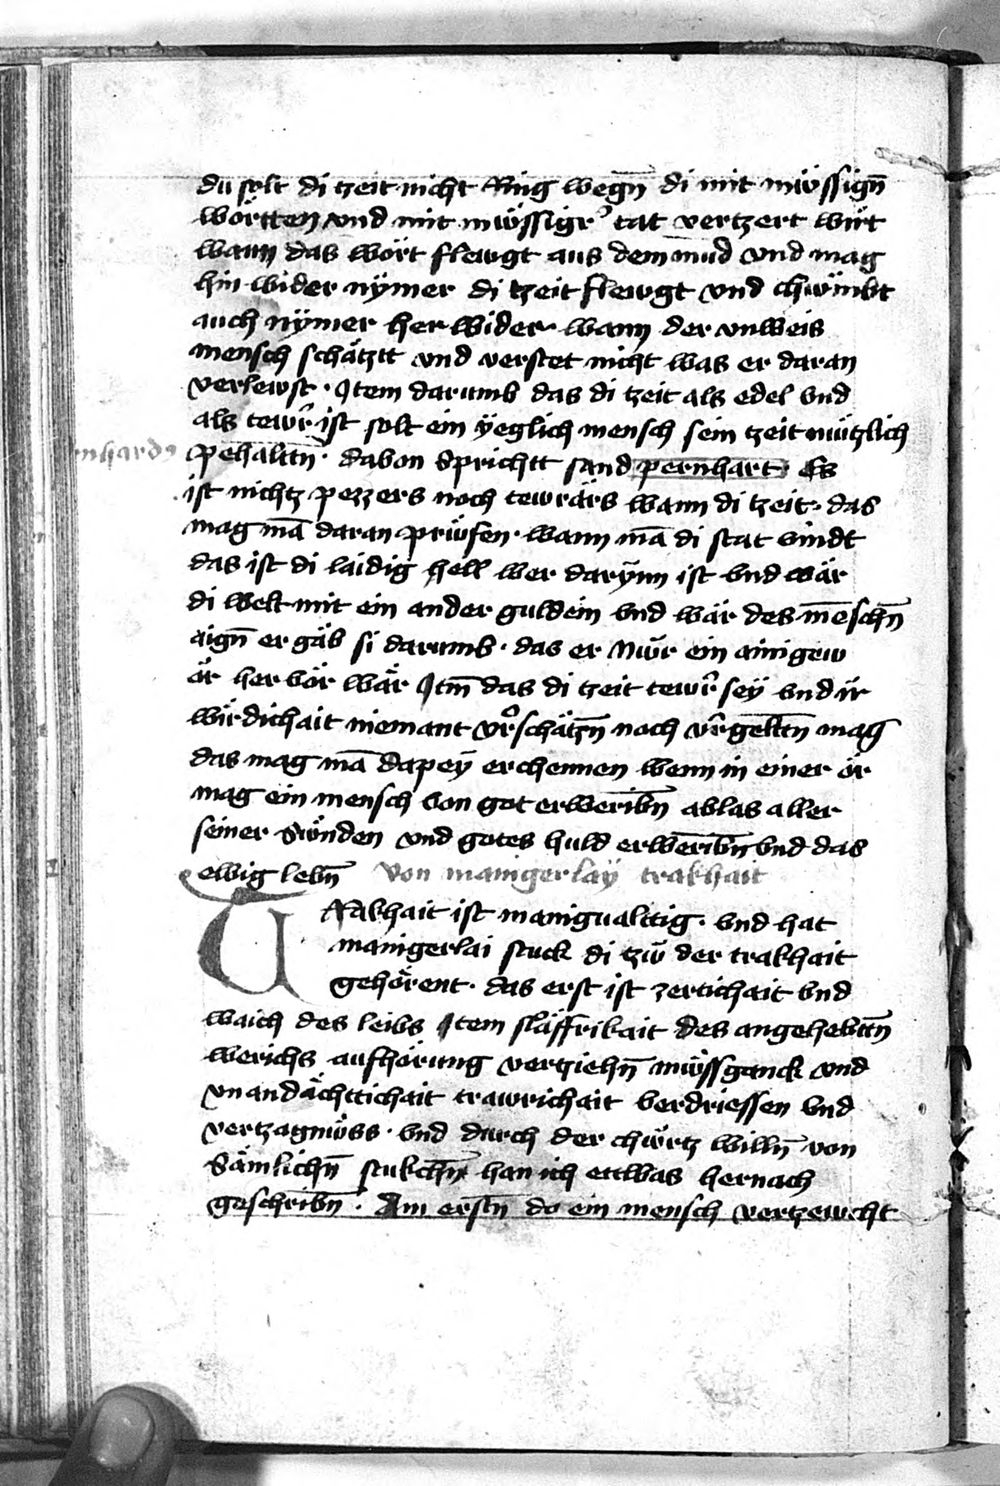 du solt di tzeit nicht Ring wegn̄ di mit müssign̄
wörtten vnd mit müssigr̾ tat vertzert wirt
wann das wört flewgt aus dem mūd vnd mag
hin wider nÿmer di tzeit flewgt vnd chümbt
auch nÿmer her wider · wann der vnweis
mensch schätzt vnd verstet nicht was er daran
verlewst · Item darumb das di tzeit als edel vnd
als tewr̄ ist solt ein ÿeglich mensch sein tzeit nützlich
nhardꝰ
pehalttn̄ · dabon Sprichtt sand pernhart · Es
ist nichtz pezzers noch tewrärs wann di tzeit · das
mag mā daran prüfen · wann mā di stat vindt
das ist di laidig hell wer darÿnn ist vnd wär
di welt mit ein ander guldein vnd wär des mēschn̄
aign̄ er gäb si darumb · das er nŵr ein ainigew
ör her vör wär Itm̄ das di tzeit tewr̄ seÿ vnd ir
wirdichait niemant vr̾schätzn̄ noch vr̄geltn̄ mag
das mag mā dapeÿ erchennen wenn in einer ör
mag ein mensch von got erweribn̄ ablas aller
seiner Sünden vnd gotes huld erweribn̄ vnd das
ewig lebn̄ Von manigerlaÿ trakhait
TRakhait ist manigualttig · vnd hat
manigerlai stuck di tzŵ der trakhait
gehörent · das erst ist zertichait vnd
waich des leibs Item släffrikait des angehebttn̄
werichs aufhörung vertziehn̄ müssganck vnd
vnandächttichait trawrichait verdriessen vnd
vertzagnüss · vnd durch der chürtz willn̄ von
Sämlichn̄ stukchn̄ han ich ettwas hernach
geschribn̄ · Am erstn̄ do ein mensch vertzewcht